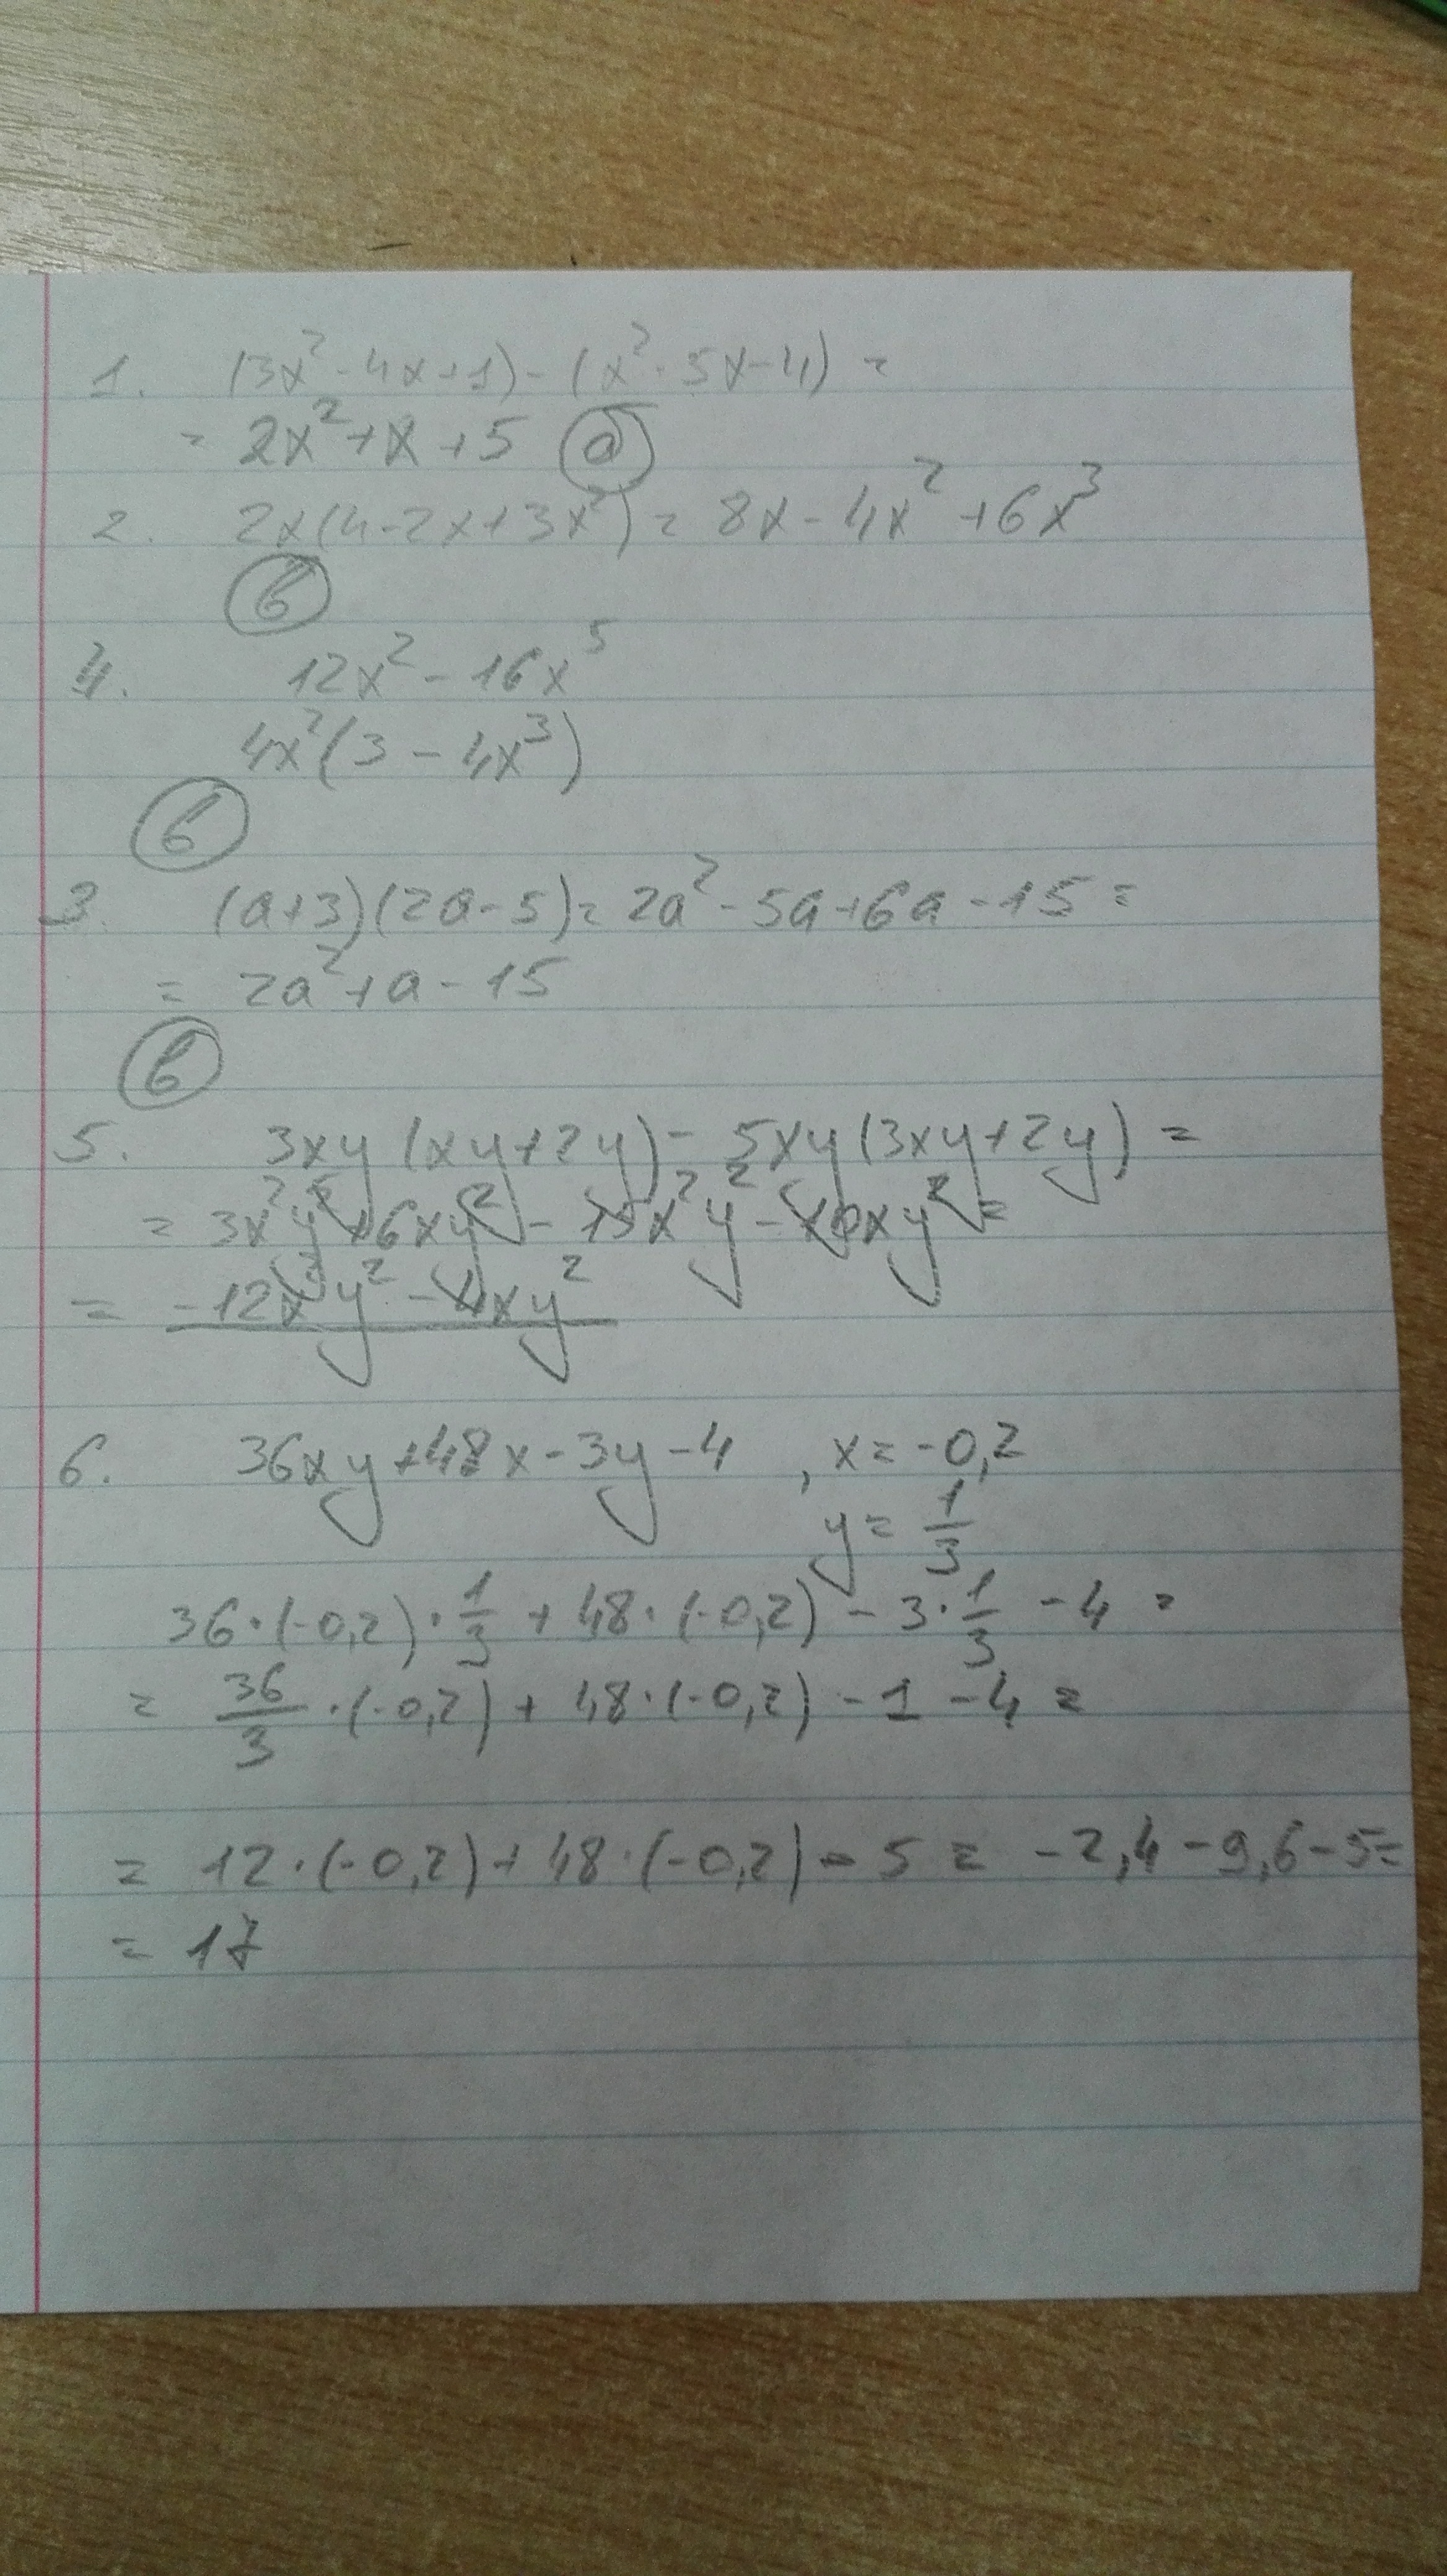 1. (3x² - 4x + 1) - (x² - 5x - 4) =
= 2x² + x + 5 ⓐ
2. 2x(4 - 2x + 3x²) = 8x - 4x² + 6x³
ⓑ
4. 12x² - 16x⁵
4x²(3 - 4x³)
ⓑ
3. (a+3)(2a-5) = 2a² - 5a + 6a - 15 =
= 2a² + a - 15
ⓑ
5. 3xy(xy+2y) - 5xy(3xy+2y) =
= 3x²y² + 6xy² - 15x²y² - 10xy² =
= -12x²y² - 4xy²
6. 36xy + 48x - 3y - 4 , x = -0,2
y = 1/3
36·(-0,2)·1/3 + 48·(-0,2) - 3·1/3 - 4 =
= 36/3·(-0,2) + 48·(-0,2) - 1 - 4 =
= 12·(-0,2) + 48·(-0,2) - 5 = -2,4 - 9,6 - 5 =
= 17